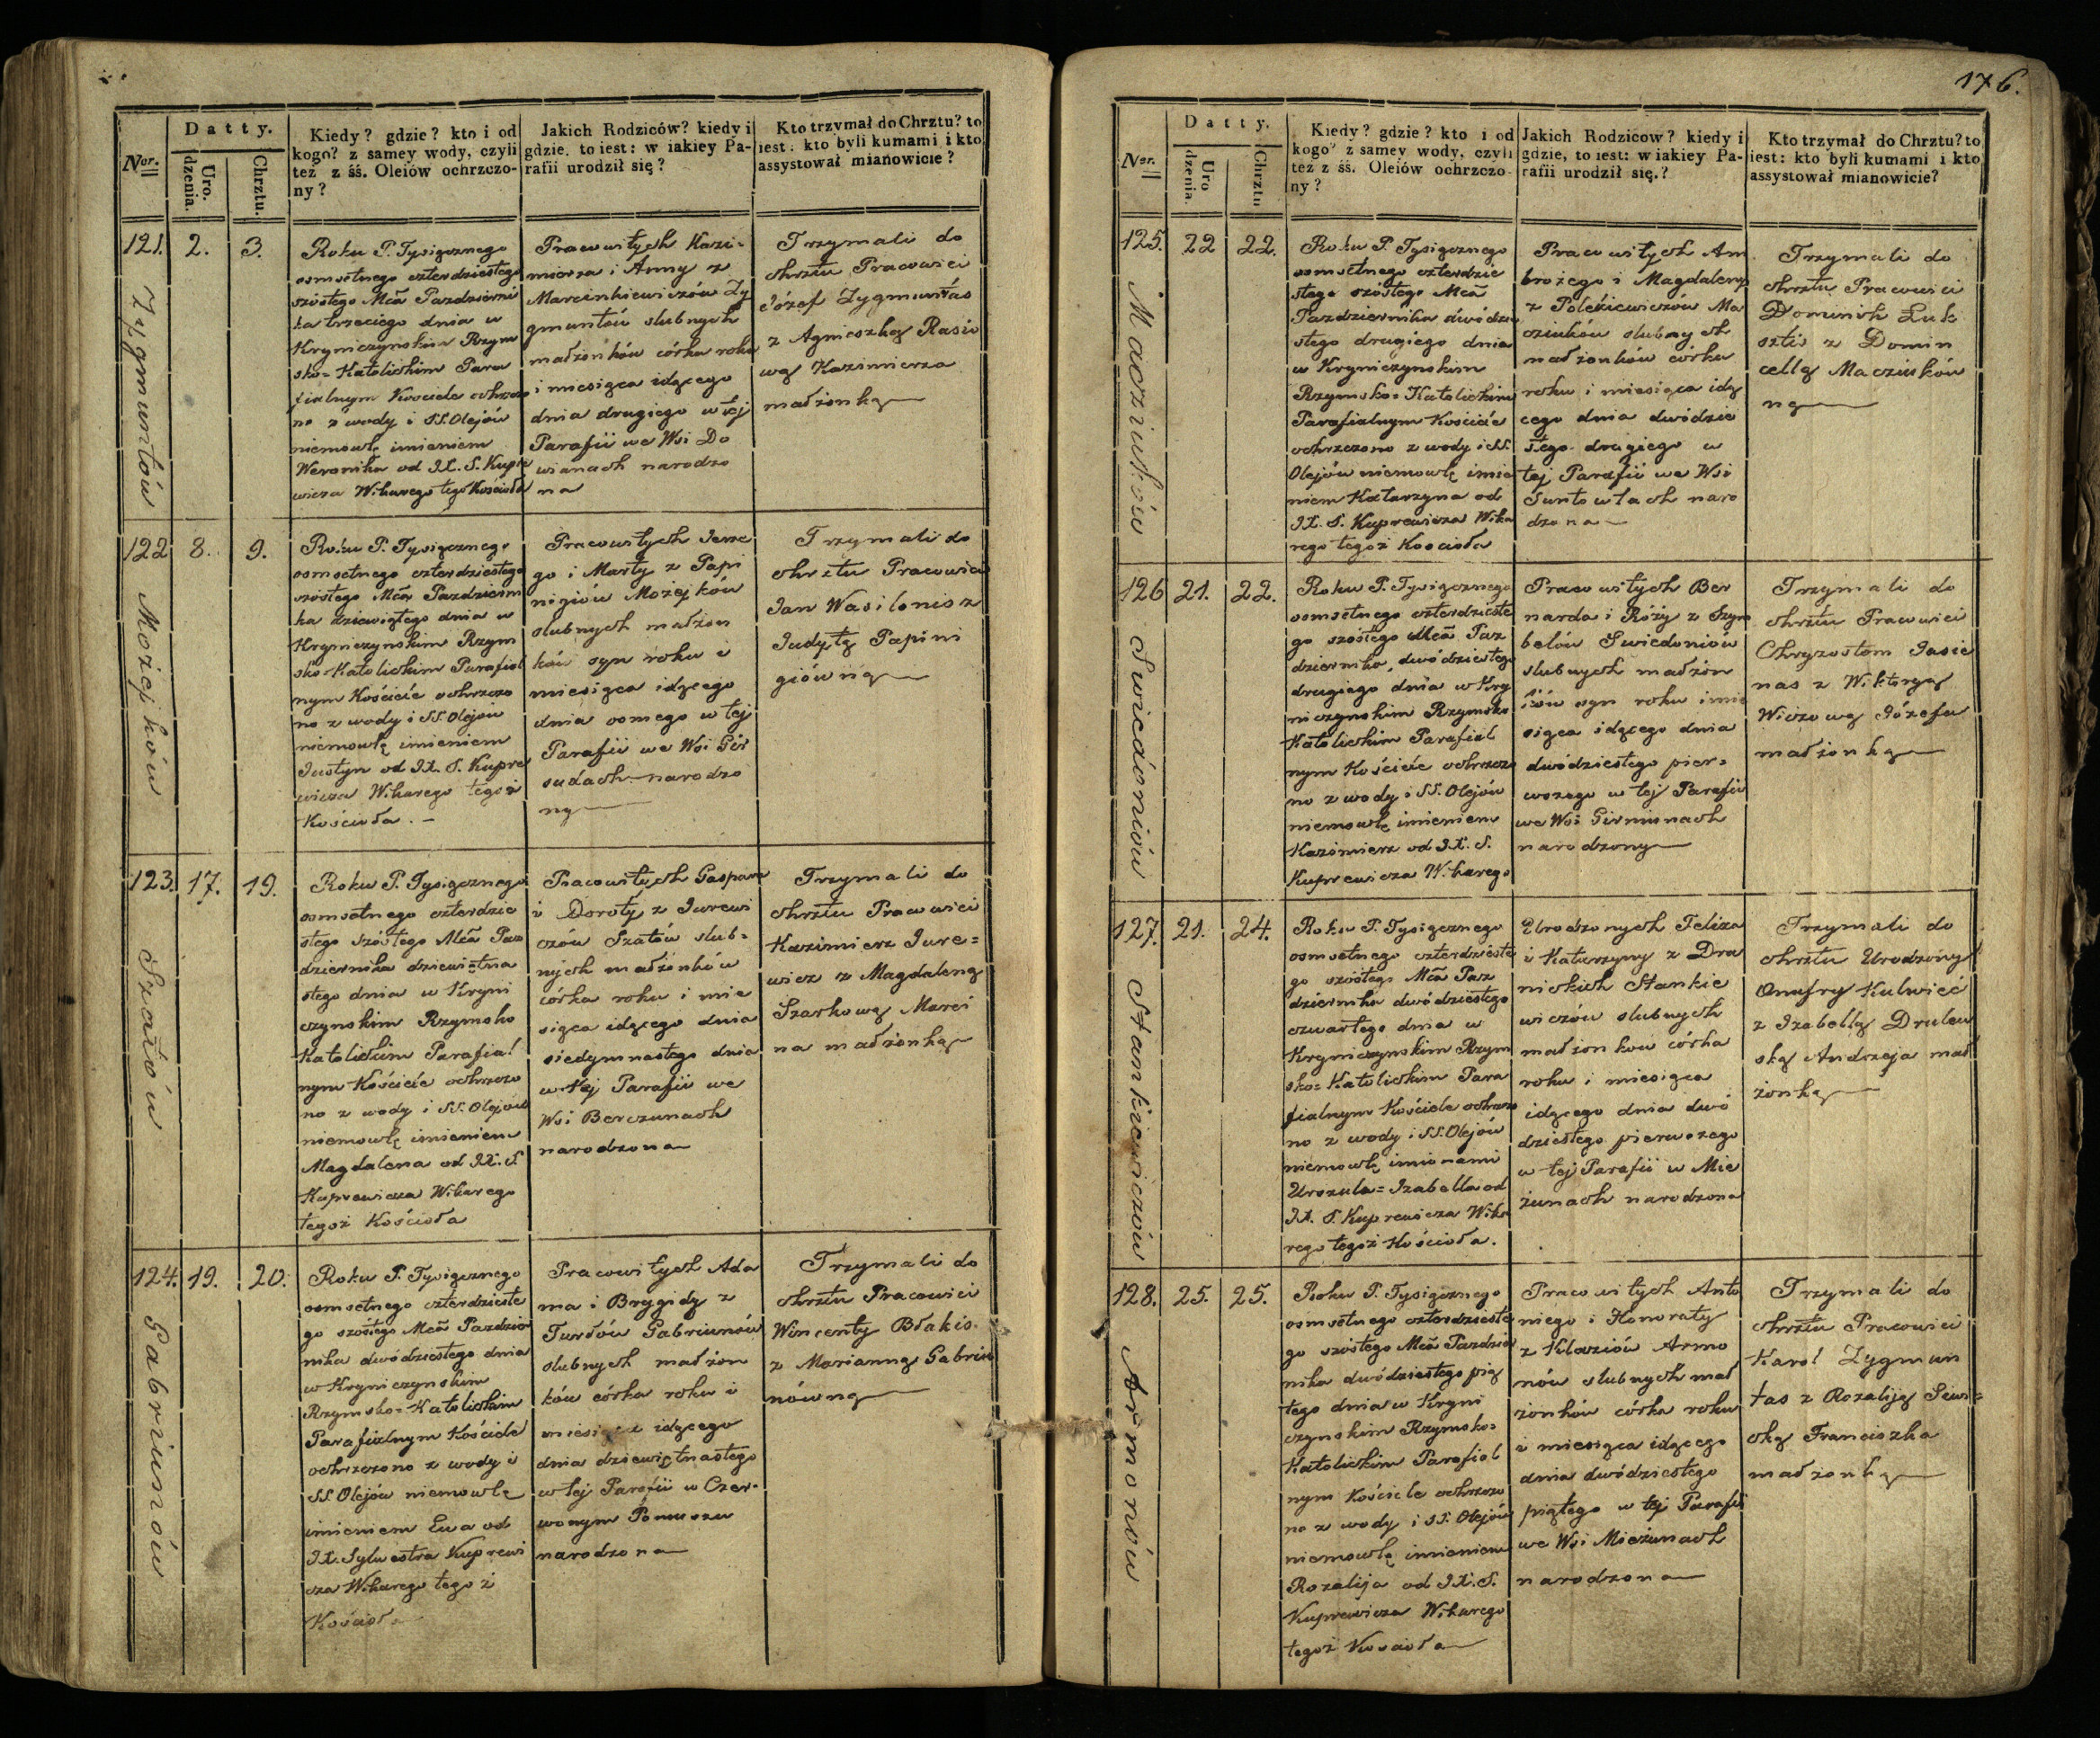 Nor.
Datty.
Uro-
dzenia.
Chrztu.
Kiedy? gdzie? kto i od
kogo? z samey wody, czyli
też z śś. Oleiów ochrzczo-
ny?
Jakich Rodziców? kiedy i
gdzie, to iest: w iakiey Pa-
rafii urodził się?
Kto trzymał do Chrztu? to
iest: kto byli kumami i kto
assystował mianowicie?
121.
2.
3.
Zygmuntów
Roku P. Tysiącznego
osmsetnego czterdziestego
szóstego Mcā Pazdzierni
ka trzeciego dnia w
Kryniczynskim Rzym
sko=Katolickim Para
fialnym Kosciele ochrzczo
no z wody i SS. Olejów
niemowlę imieniem
Weronika od JX. S. Kupre
wicza Wikarego tegoż Kościoła
Pracowitych Kazi=
mierza i Anny z
Marcinkiewiczów Zy
gmuntów slubnych
małżonków córka roku
i miesiąca idącego
dnia drugiego w tej
Parafii we Wsi Do
wianach narodzo
na
Trzymali do
chrztu Pracowici
Józef Zygmuntas
z Agnieszką Rasio
wą Kazimierza
małżonką
122
8.
9.
Możejków
Roku P. Tysiącznego
osmsetnego czterdziestego
szóstego Mcā Pazdzierni
ka dziewiątego dnia w
Kryniczynskim Rzym
sko=Katolickim Parafial
nym Kościele ochrzczo
no z wody i SS. Olejów
niemowlę imieniem
Justyn od JX. S. Kupre
wicza Wikarego tegoż
Kościoła. –
Pracowitych Jerze
go i Marty z Papi
nigiów Możejków
slubnych małżon
ków syn roku i
miesiąca idącego
dnia osmego w tej
Parafii we Wsi Gir
sudach narodzo
ny
Trzymali do
chrztu Pracowici
Jan Wasilonis z
Judytą Papini
giówną
123.
17.
19.
Szatów
Roku P. Tysiącznego
osmsetnego czterdzie
stego szóstego Mcā Paz
dziernika dziewiętna
stego dnia w Kryni
czynskim Rzymsko
Katolickim Parafial
nym Kościele ochrzczo
no z wody i SS. Olejów
niemowlę imieniem
Magdalena od JX. S.
Kuprewicza Wikarego
tegoż Kościoła
Pracowitych Gaspara
i Doroty z Jurewi
czów Szatów slub=
nych małżonków
córka roku i mie
siąca idącego dnia
siedymnastego dnia
w tej Parafii we
Wsi Berczunach
narodzona
Trzymali do
chrztu Pracowici
Kazimierz Jure=
wicz z Magdaleną
Szarkową Marci
na małżonką
124.
19.
20.
Gabriunów
Roku P. Tysiącznego
osmsetnego czterdzieste
go szóstego Mcā Pazdzier
nika dwódziestego dnia
w Kryniczynskim
Rzymsko=Katolickim
Parafialnym Kościele
ochrzczono z wody i
SS. Olejów niemowlę
imieniem Ewa od
JX. Sylwestra Kuprewi
cza Wikarego tegoż
Kościoła
Pracowitych Ada
ma i Brygidy z
Turłów Gabriunów
slubnych małżon
ków córka roku i
miesiąca idącego
dnia dziewiętnastego
w tej Parafii w Czer=
wonym Pomuszu
narodzona
Trzymali do
chrztu Pracowici
Wincenty Błakis
z Marianną Gabriu
nówną
176.
Nor.
Datty.
Uro
dzenia.
Chrztu
Kiedy? gdzie? kto i od
kogo? z samey wody, czyli
też z śś. Oleiów ochrzczo-
ny?
Jakich Rodzicow? kiedy i
gdzie, to iest: w iakiey Pa-
rafii urodził się.?
Kto trzymał do Chrztu? to
iest: kto byli kumami i kto
assystował mianowicie?
125.
22
22.
Macziuków
Roku P. Tysiącznego
osmsetnego czterdzie
stego szóstego Mcā
Pazdziernika dwódzie
stego drugiego dnia
w Kryniczynskim
Rzymsko=Katolickim
Parafialnym Kościele
ochrzczono z wody i SS.
Olejów niemowlę imie
niem Katarzyna od
JX. S. Kuprewicza Wika
rego tegoż Kościoła
Pracowitych Am
brożego i Magdaleny
z Polekiewiczów Ma
cziuków slubnych
małżonków córka
roku i miesiąca idą
cego dnia dwódzie
stego drugiego w
tej Parafii we Wsi
Suntowtach naro
dzona
Trzymali do
chrztu Pracowici
Dominik Łuk
sztis z Domin
cellą Macziuków
ną
126
21.
22.
Swiedoniów
Roku P. Tysiącznego
osmsetnego czterdzieste
go szóstego Mcā Paz
dziernika, dwódziestego
drugiego dnia w Kry
niczynskim Rzymsko
Katolickim Parafial
nym Kościele ochrzczo
no z wody i SS. Olejów
niemowlę imieniem
Kazimierz od JX. S.
Kuprewicza Wikarego
Pracowitych Ber
narda i Róży z Szym
belów Swiedoniów
slubnych małżon
ków syn roku i mie
siąca idącego dnia
dwódziestego pier=
wszego w tej Parafii
we Wsi Girniunach
narodzony
Trzymali do
chrztu Pracowici
Chryzostom Jasie
nas z Wiktoryą
Wiczową Józefa
małżonką
127.
21.
24.
Stankiewiczów
Roku P. Tysiącznego
osmsetnego czterdzieste
go szóstego Mcā Paz
dziernika dwódziestego
czwartego dnia w
Kryniczynskim Rzym
sko=Katolickim Para
fialnym Kościele ochrzczo
no z wody i SS. Olejów
niemowlę imionami
Urszula=Izabella od
JX. S. Kuprewicza Wika
rego tegoż Kościoła.
Urodzonych Felixa
i Katarzyny z Dra
nickich Stankie
wiczów slubnych
małżonkow córka
roku i miesiąca
idącego dnia dwó
dziestego pierwszego
w tej Parafii w Mie
żunach narodzona
Trzymali do
chrztu Urodzony
Onufry Kulwieć
z Izabellą Drulew
ską Andrzeja mał
żonką
128.
25.
25.
Armonów
Roku P. Tysiącznego
osmsetnego czterdzieste
go szóstego Mcā Pazdzier
nika dwódziestego pią
tego dnia w Kryni
czynskim Rzymsko=
Katolickim Parafial
nym Kościele ochrzczo
no z wody i SS. Olejów
niemowlę imieniem
Rozalija od JX. S.
Kuprewicza Wikarego
tegoż Kościoła
Pracowitych Anto
niego i Honoraty
z Klaziów Armo
nów slubnych mał
żonków córka roku
i miesiąca idącego
dnia dwódziestego
piątego w tej Parafii
we Wsi Mieżunach
narodzona
Trzymali do
chrztu Pracowici
Karol Zygmun
tas z Rozaliją Sewi=
ską Franciszka
małżonką